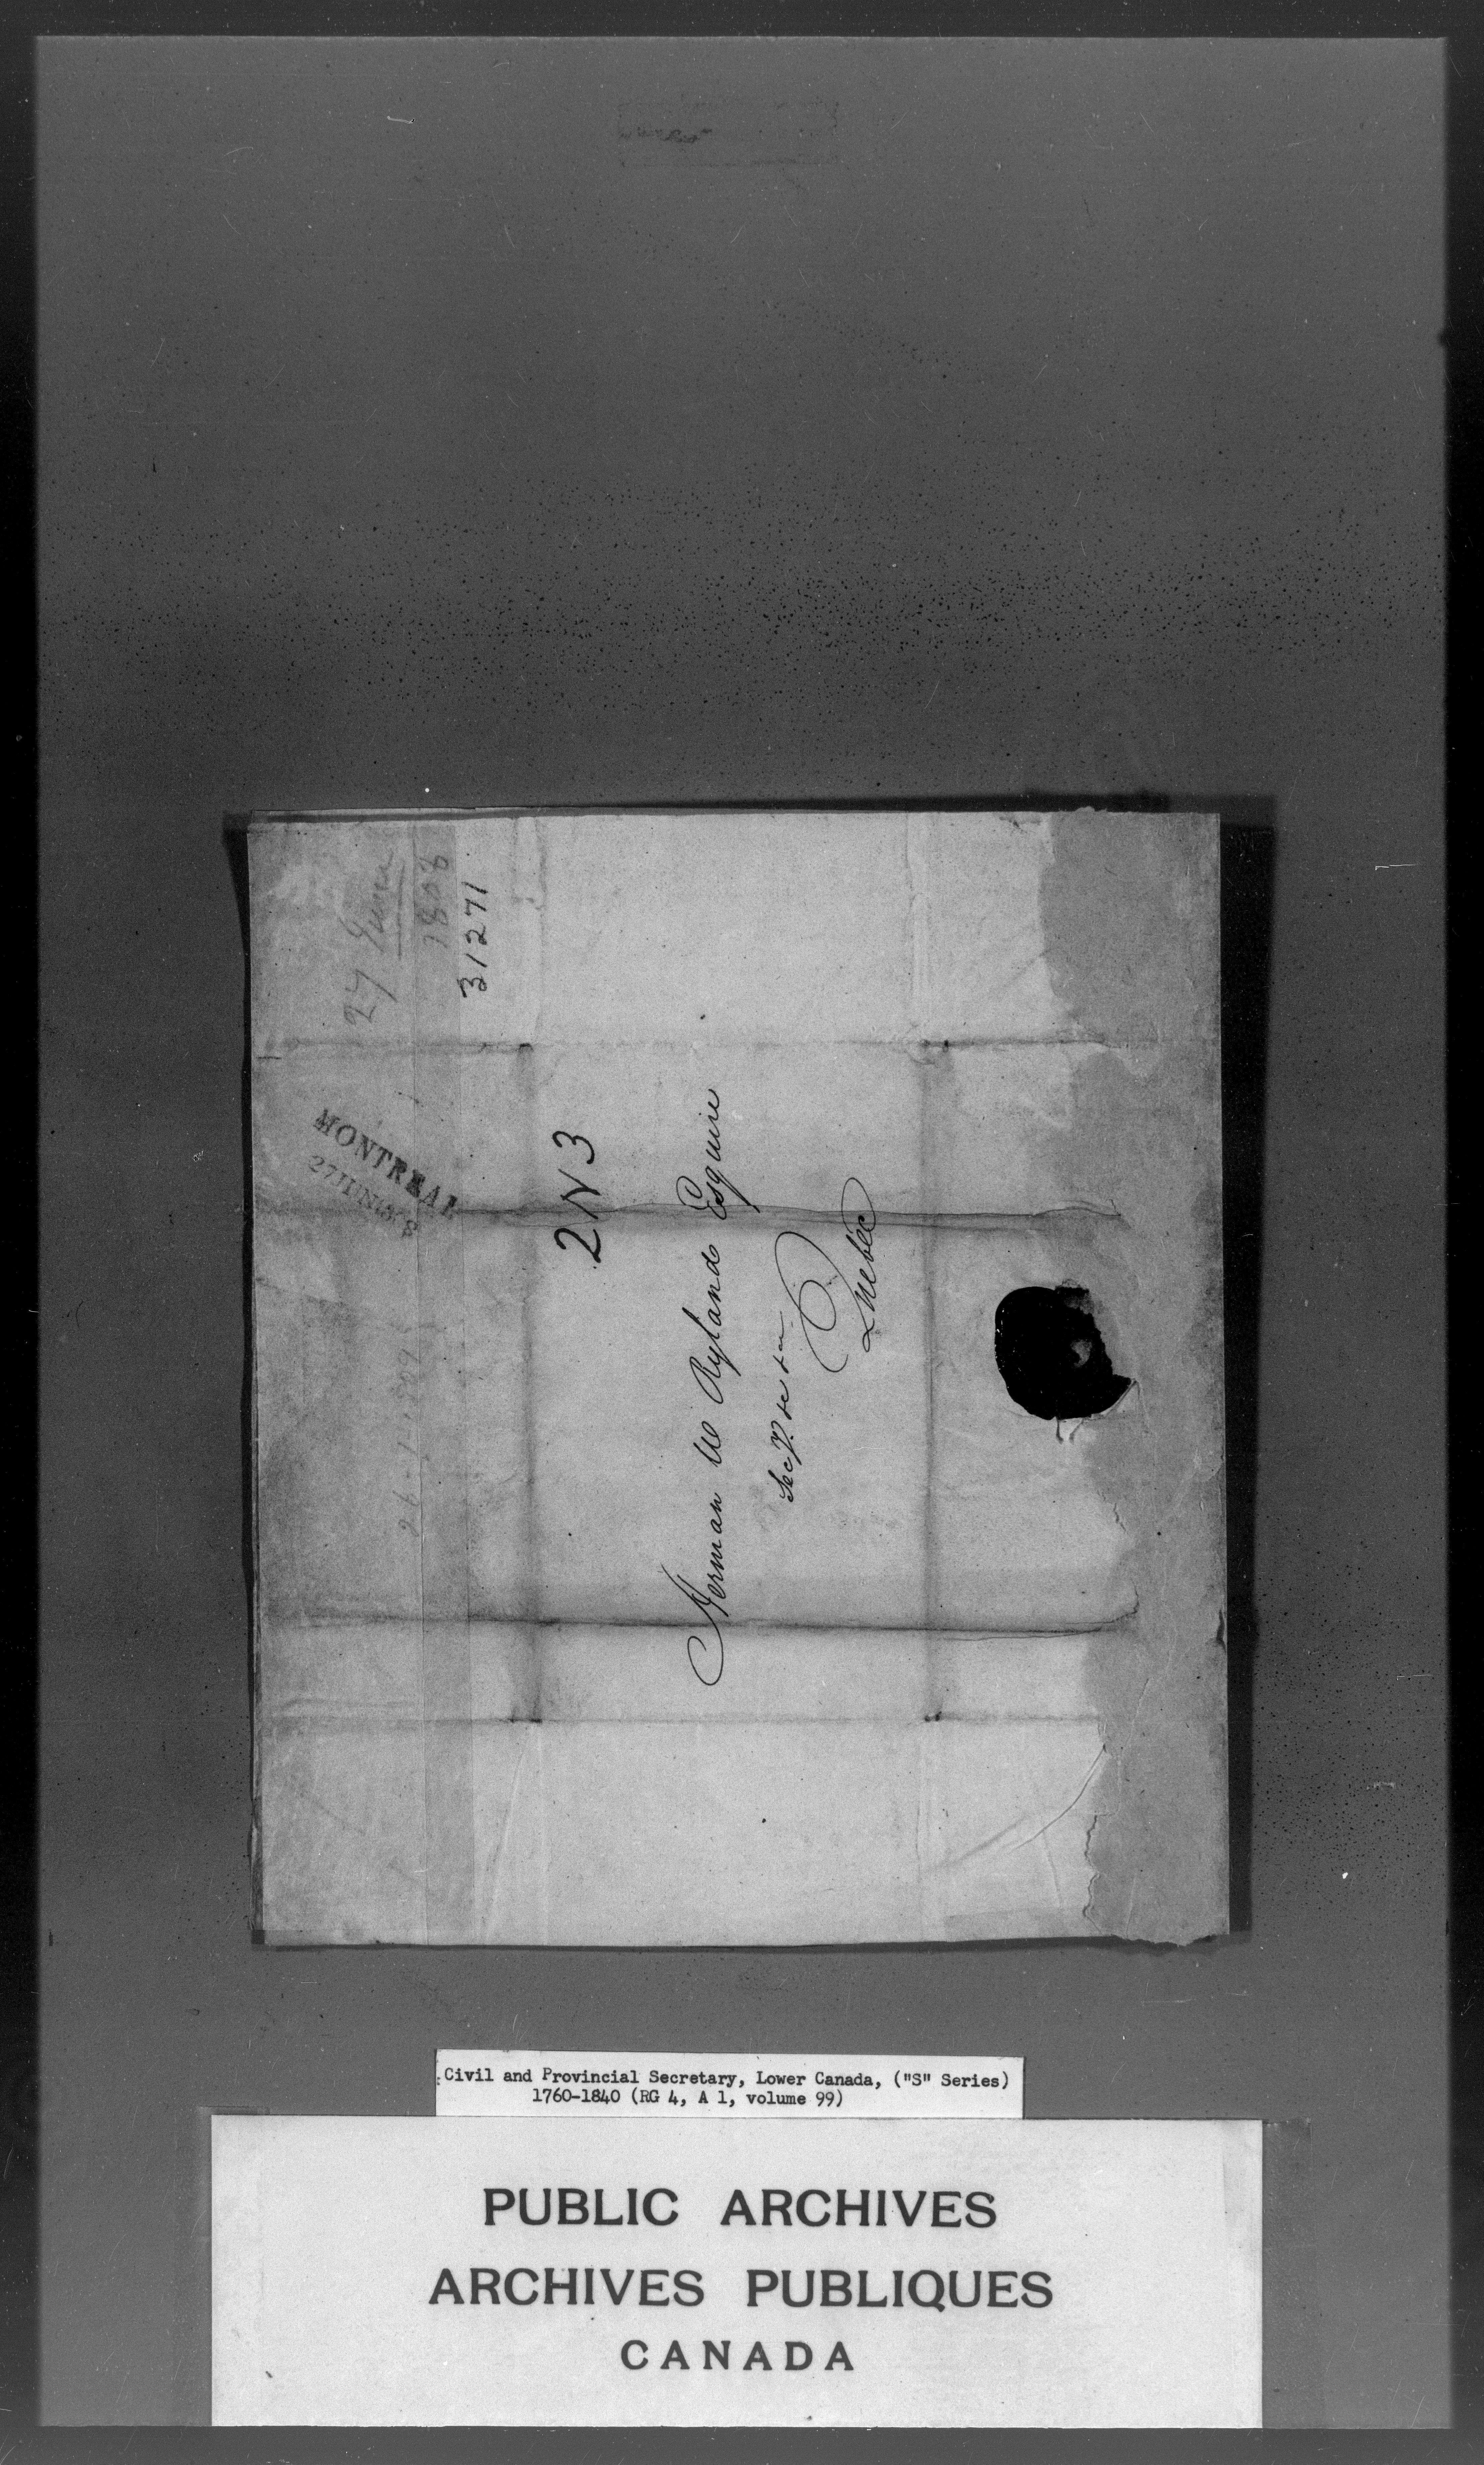 27 June
1808
31271
MONTREAL
27 JUN 1808
2 N 3
Herman W Ryland Esquire
Secy. &c &c
Quebec
Civil and Provincial Secretary, Lower Canada, ("S" Series)
1760-1840 (RG 4, A 1, volume 99)
PUBLIC ARCHIVES
ARCHIVES PUBLIQUES
CANADA